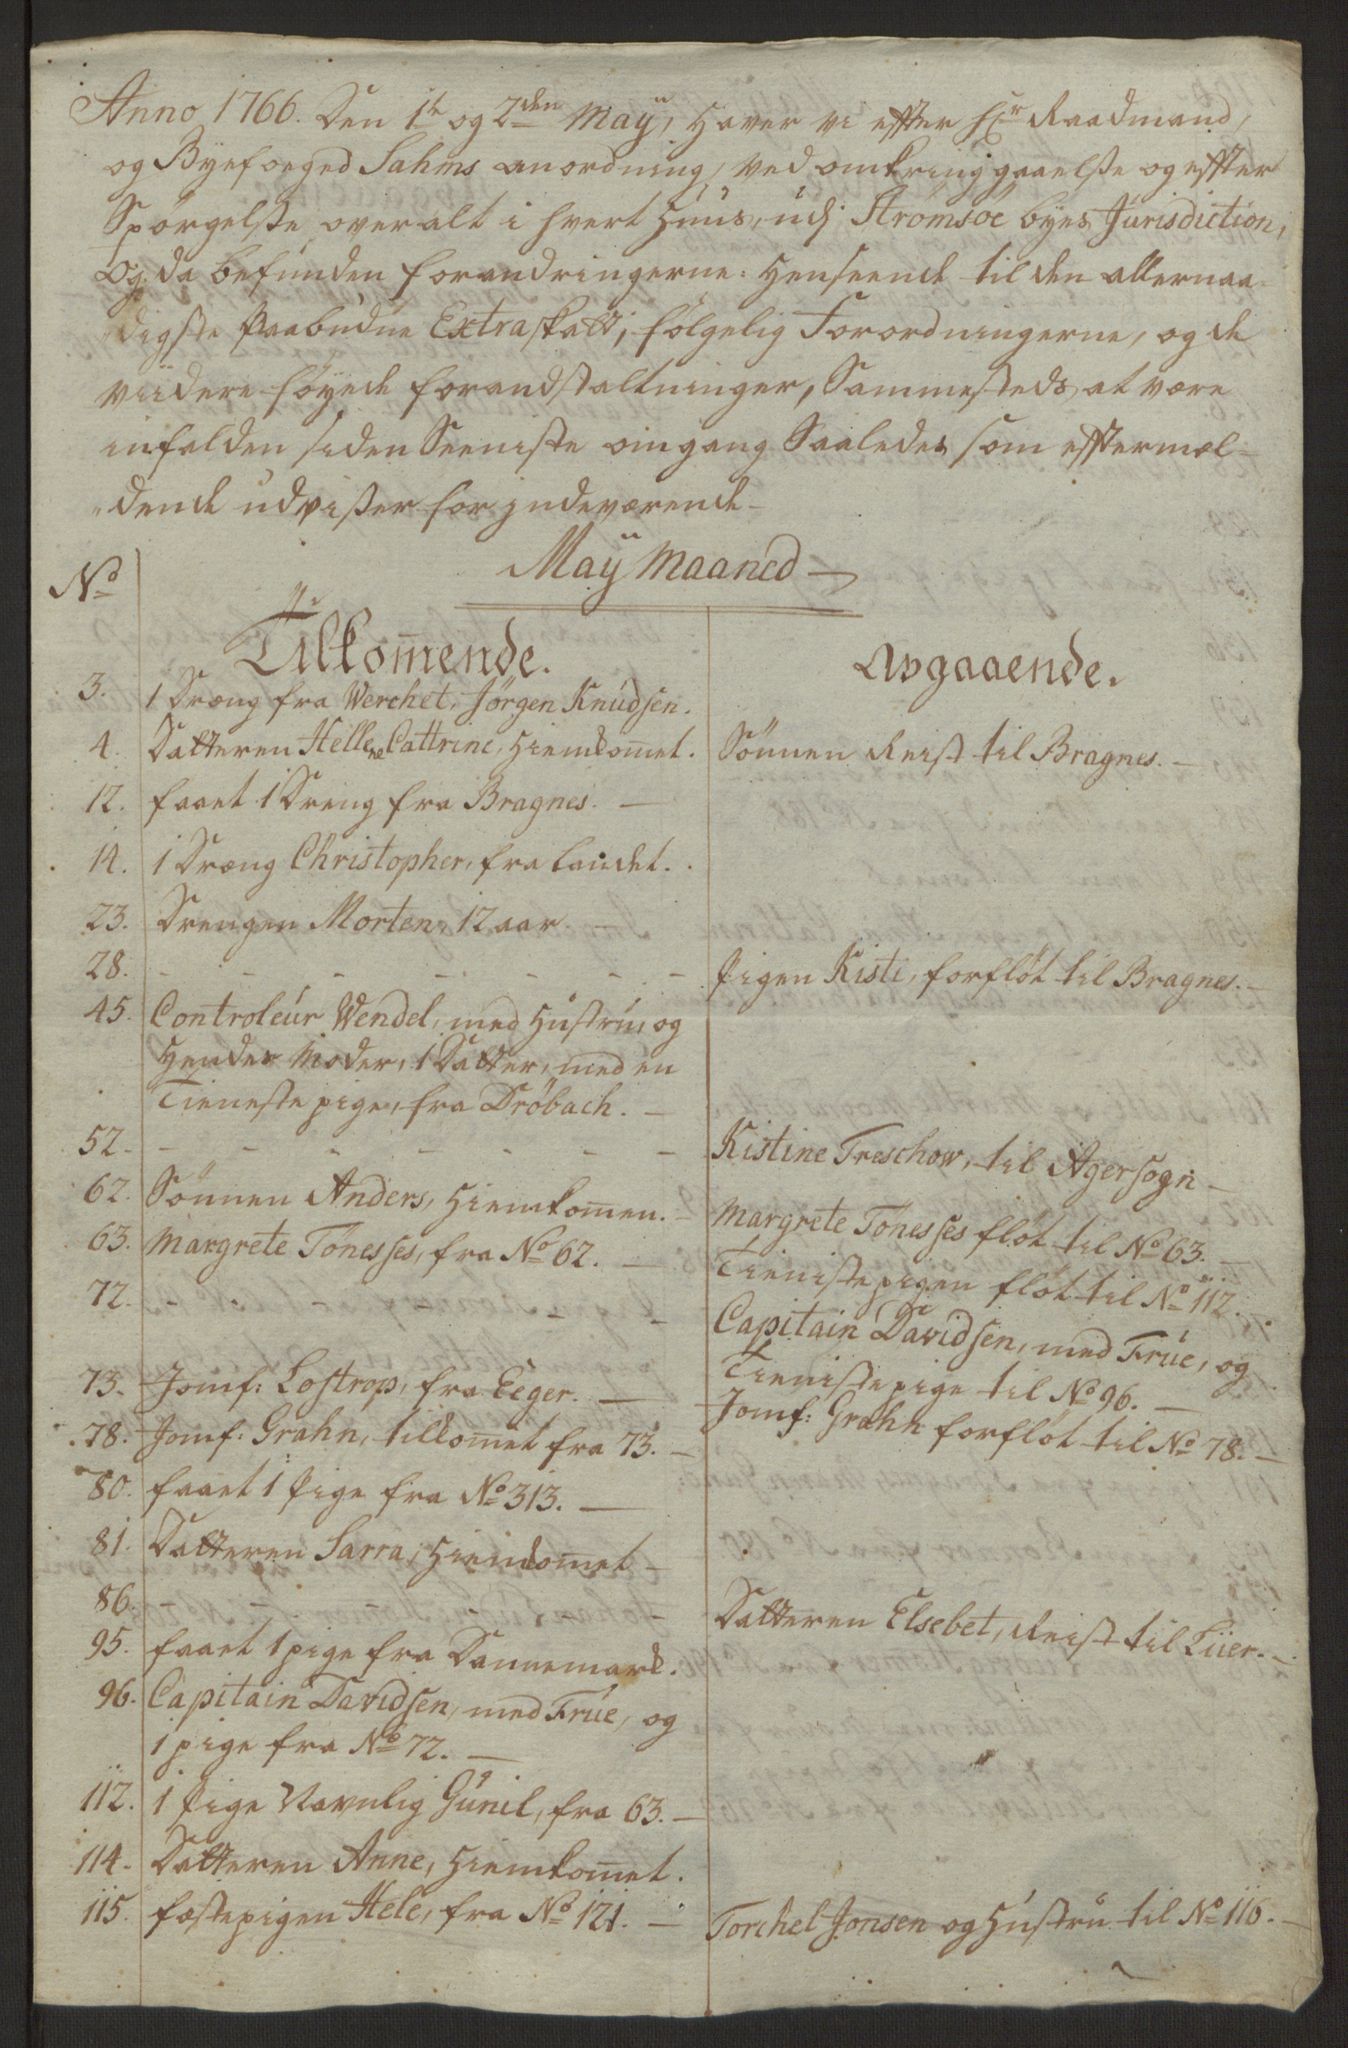 Anno 1766. Den 1te og 2den Maÿ, Haver vi effter Hr Raadmand,
og Byefoeged Sahms anordning, ved omkringgaaelse og effter
Spörgelse overalt i hvert Huus, udj Strömsöe byes Jurisdiction,
Og da befunden forandringerne: Henseende til den allernaa-
digste Paabudne Extraskatt, fölgelig Forordningerne, og de
viidere föyede foranstaltninger, Sammesteds, at være
infalden siden Seeniste omgang Saaledes som efftermel-
dende udviser for jndeværende
Maÿ Maaned
No
Tilkom̄ende.
Avgaaende.
3. 1 Dræng fra Werchet, Jörgen Knudsen.
4. Datteren Hellene Cattrine, Hiemkom̄et. Sönnen Reist til Bragnes.
12. faaet 1 Dreng fra Bragnes.
14. 1 Dræng Christopher, fra Landet.
23. Drengen Morten, 12 aar
28. - - - - - - - Pigen Kisti, forflöt til Bragnes.
45. Controleúr Wendel, med Hustrú, og
Hendes Moder, 1 Datter, med en
Tieneste pige, fra Dröbach.
52. - - - - - - - Kistine Treschow, til Agersogn
62. Sönnen Anders, Hiemkom̄en. Margrete Tönesses flöt til No 63.
63. Margrete Tönesses, fra No 62. Tienistepigen flöt til No 112.
72. - - - - - - - Capitain Davidsen, med Frúe, og
Tienistepige til No 96.
73. Jomf: Lostrop, fra Eeger. Jomf: Grahn forflöt til No 78.
78. Jomf: Grahn, tilkom̄et fra 73.
80. faaet 1 Pige fra No 313.
81. Datteren Sarra, Hiemkom̄et
86. - - - - - - - Datteren Elsebet, Reist til Liier.
95. faaet 1 pige fra Dannemark.
96. Capitain Davidsen, med Frúe, og
1 pige fra No 72.
112. 1 Pige Navnlig Gúnil, fra 63.
114. Datteren Anne, Hiemkom̄et.
115. fæstepigen Hele, fra No 121. Torchel Jonsen og Hústrú til No 116.